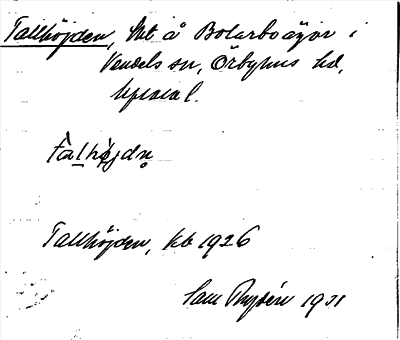 Tallhöjden, lht å Bolarbo ägor i
Vendels sn, Örbyhus hd,
Uppsal l.
Tàlhö̀jdn̥
Tallhöjden, kb 1926
Sam Rydén 1931